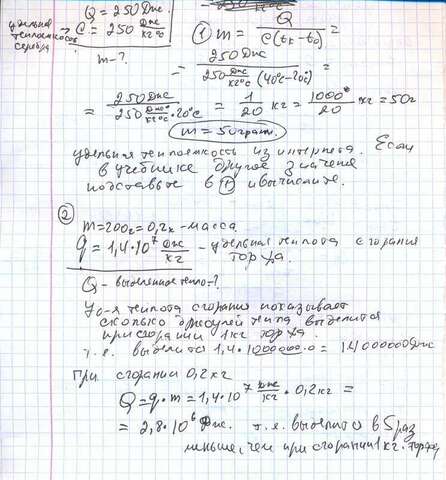 Q = 250 Дж.
удельная теплоемкость серебра
C = 250 Дж/кг°С
m - ?
① m = Q / C(tк - t0) =
= 250 Дж / 250 Дж/кг°С (40°С - 20°С) =
= 250 Дж / 250 Дж/кг°С · 20°С = 1/20 кг = 1000/20 кг = 50г
m = 50 грам.
удельная теплоемкость из интернета. Если
в учебнике другое значение
подставьте в ① и вычислите.
②
m = 200г = 0,2к - масса
q = 1,4·10⁷ Дж/кг - удельная теплота сгорания
торфа.
Q - выделенное тепло - ?
Уд-я теплота сгорания показывает
сколько джоулей тепла выделится
при сгорании 1 кг торфа.
т.е. выделится 1,4·10000000 = 14000000 Дж
При сгорании 0,2 кг
Q = q·m = 1,4·10⁷ Дж/кг · 0,2 кг =
= 2,8·10⁶ Дж. т.е. выделится в 5 раз
меньше, чем при сгорании 1 кг. торфа